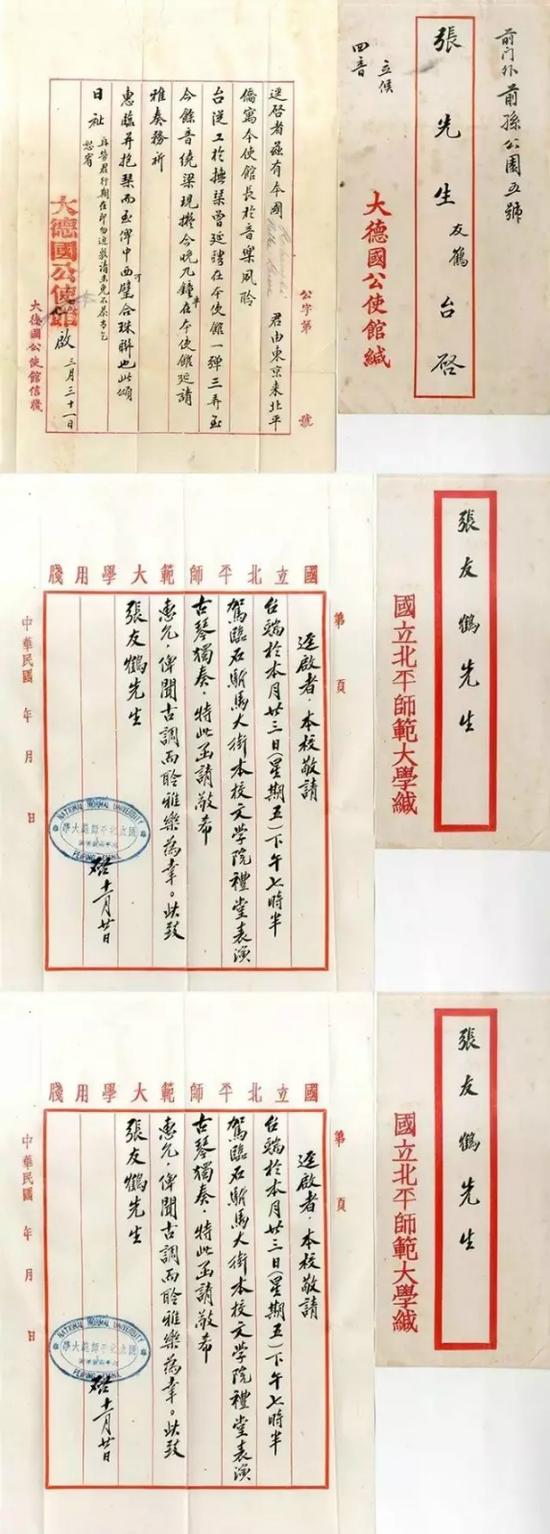 前门外前孫公園五號
張先生友鶴台啓
立候
四音
大德國公使館緘
公字第 號
逕啓者茲有本國 君由東京来北平
僑寓本使館長於音樂夙聆
台從工於撫琴曾延請在本使館一彈三弄至
今餘音繞梁現擬今晚九鐘半在本使館延請
雅奏務祈
惠臨并抱琴而至俾中西璧合珠聯也此頌
日祉
恕宥
大德國公使館啟 三月三十一日
大德國公使館信牋
張友鶴先生
國立北平師範大學緘
國立北平師範大學用牋
第 頁
逕啟者，本校敬請
台端於本月廿三日(星期五)下午七時半
駕臨石駙馬大街本校文學院禮堂表演
古琴獨奏，特此函請敬希
惠允，俾聞古調而聆雅樂為幸。此致
張友鶴先生
NATIONAL NORMAL UNIVERSITY
國立北平師範大學
PEIPING, CHINA
啓 十一月廿日
中華民國 年 月 日
張友鶴先生
國立北平師範大學緘
國立北平師範大學用牋
第 頁
逕啟者，本校敬請
台端於本月廿三日(星期五)下午七時半
駕臨石駙馬大街本校文學院禮堂表演
古琴獨奏，特此函請敬希
惠允，俾聞古調而聆雅樂為幸。此致
張友鶴先生
NATIONAL NORMAL UNIVERSITY
國立北平師範大學
PEIPING, CHINA
啓 十一月廿日
中華民國 年 月 日